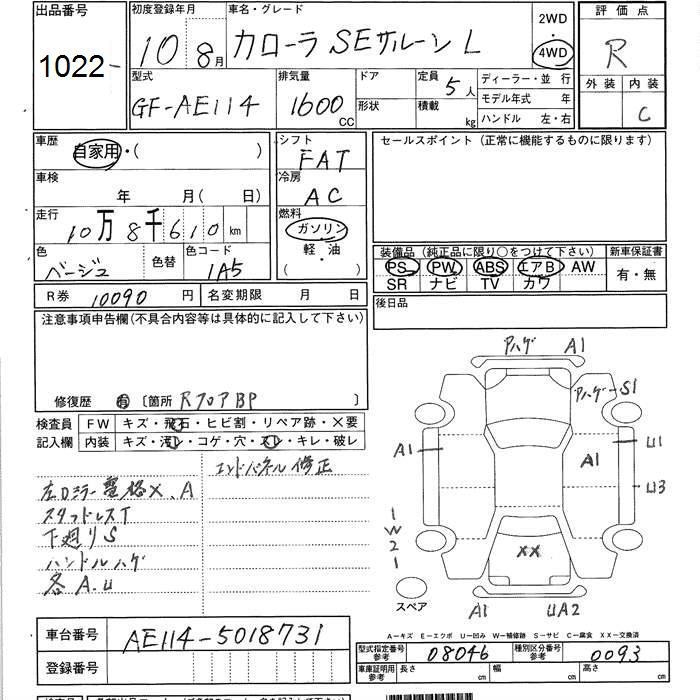 出品番号 初度登録年月 車名・グレード 2WD 評価点
1022 10 8月 カローラ SEサルーン L 4WD R
型式 排気量 ドア 定員 5人 ディーラー・並 行 外装 内装
GF-AE114 1600 CC 形状 積載 kg モデル年式 年 C
ハンドル 左・右
車歴 自家用・( ) シフト セールスポイント (正常に機能するものに限ります)
FAT
車検 冷房
年 月 (日) AC
走行 10万8千610km 燃料
ガソリン
色 色替 色コード 軽・油 装備品 (純正品に限り○をつけて下さい) 新車保証書
ベージュ 1A5 ( ・ ) PS PW ABS エアB AW 有・無
SR ナビ TV カワ
R券 10090 円 名変期限 月 日 後日品
注意事項申告欄(不具合内容等は具体的に記入して下さい)
アハゲ A1
アハゲ S1
修復歴 有 〔箇所 RフロアBP 〕
検査員 FW キズ・飛石・ヒビ割・リペア跡・×要
記入欄 内装 キズ・汚レ・コゲ・穴・スレ・キレ・破レ
A1 A1 U1
エンドパネル修正
左Dミラー電格×、A U3
スタッドレスT
下廻りS 1W21
ハンドルハゲ XX
各A.U
スペア A1 UA2
A-キズ E-エクボ U-凹み W-補修跡 S-サビ C-腐食 XX-交換済
車台番号 AE114-5018731
型式指定番号 参考 08046 種別区分番号 参考 0093
登録番号 車庫証明用 参考 長さ cm 幅 cm 高さ cm